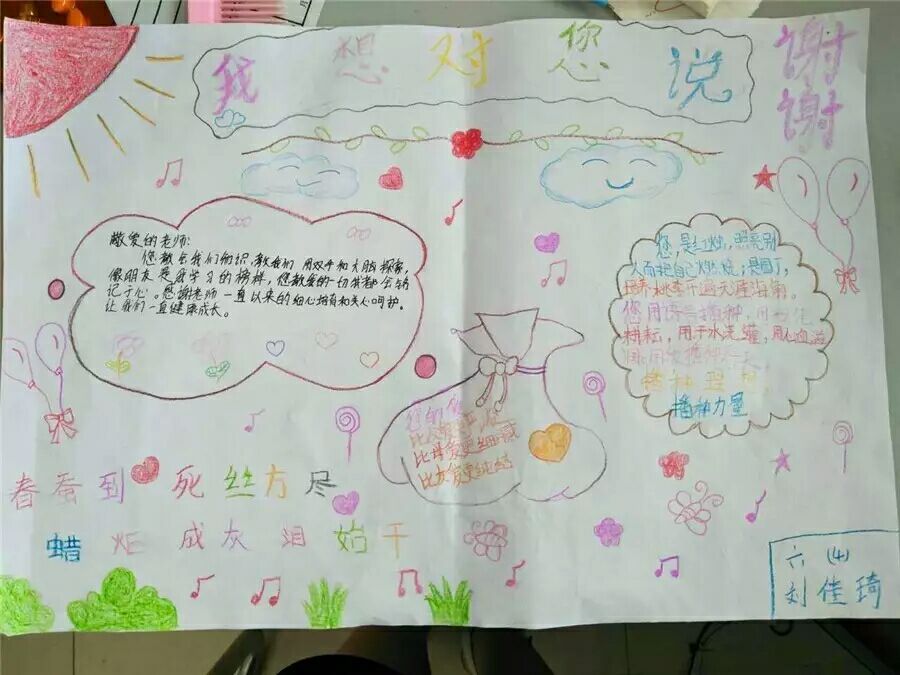 我想对您说
谢谢
敬爱的老师:
您教会我们知识,教我们用双手和大脑探索,
像朋友是成学习的榜样,您教爱的一切我都会铭
记于心。感谢老师一直以来的细心培育和关心呵护。
让我们一直健康成长。
您,是红烛,照亮别
人而把自己燃烧;是园丁,
培养桃李千遍天涯海角。
您用语言播种,用
耕耘,用汗水浇灌,用心血滋
播种
播种力量
您的
比
比母爱更细
比友爱更纯
春蚕到死丝方尽
蜡炬成灰泪始干
六(4)
刘佳琦